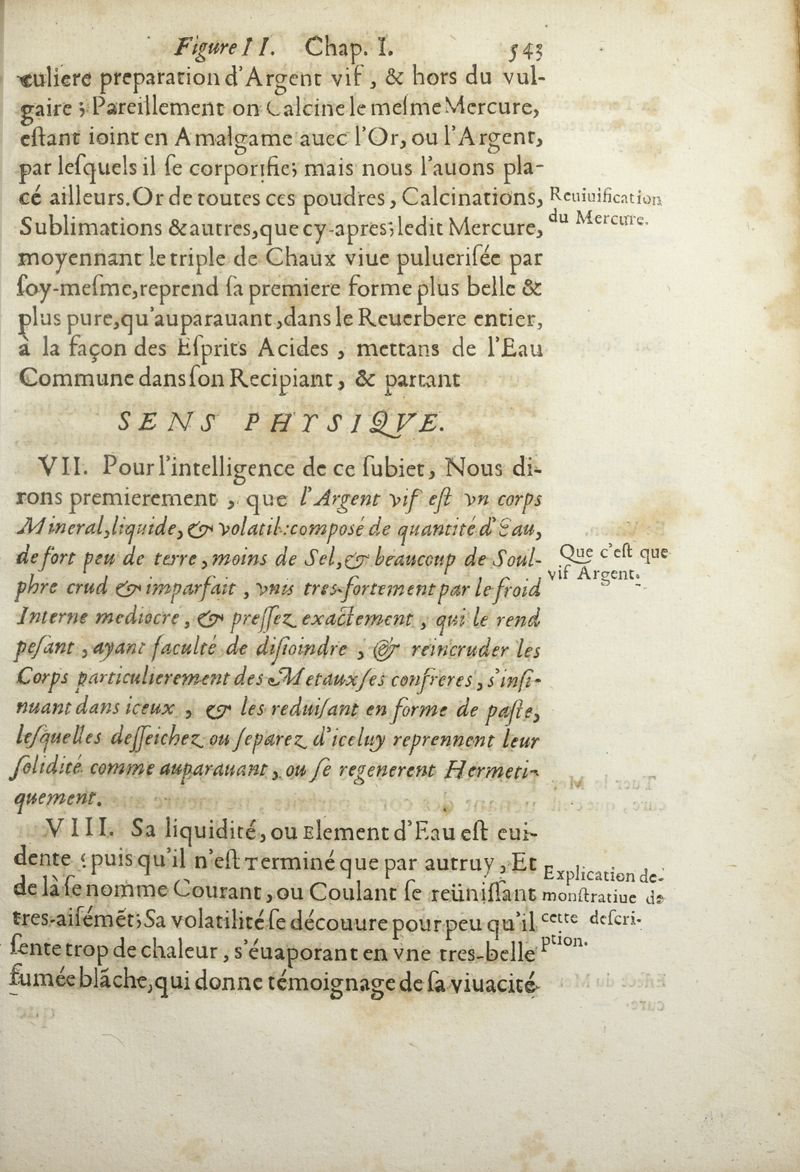 Figure II. Chap. I. 543
culiere preparation d'Argent vif, & hors du vul-
gaire; Pareillement on Calcine le meſme Mercure,
eſtant ioint en Amalgame auec l'Or, ou l'Argent,
par leſquels il ſe corporifie; mais nous l'auons pla-
cé ailleurs. Or de toutes ces poudres, Calcinations,
Sublimations & autres, que cy-apres; ledit Mercure,
moyennant le triple de Chaux viue puluerisée par
ſoy-meſme, reprend ſa premiere forme plus belle &
plus pure, qu'auparauant, dans le Reuerbere entier,
à la façon des Eſprits Acides, mettans de l'Eau
Commune dans ſon Recipiant, & partant
Reuiuification
du Mercure.
SENS PHYSIQVE.
VII. Pour l'intelligence de ce ſubiet, Nous di-
rons premierement, que l'Argent vif eſt vn corps
Mineral, liquide, & volatil: composé de quantité d'Eau,
de fort peu de terre, moins de Sel, & beaucoup de Soul-
phre crud & imparfait, vnis tres-fortement par le froid
Interne mediocre, & preſſez exactement, qui le rend
peſant, ayant faculté de diſioindre, & reincruder les
Corps particulierement des Metaux ſes confreres, s'inſi-
nuant dans iceux, & les reduiſant en forme de paſte,
leſquelles deſſeichez ou ſeparez d'iceluy reprennent leur
ſolidité comme auparauant, ou ſe regenerent Hermeti-
quement.
Que c'eſt que
vif Argent.
VIII. Sa liquidité, ou Element d'Eau eſt eui-
dente; puis qu'il n'eſt Terminé que par autruy, Et
de là ſe nomme Courant, ou Coulant ſe reüniſſant
tres-aisémēt; Sa volatilité ſe découure pour peu qu'il
ſente trop de chaleur, s'éuaporant en vne tres-belle
fumée blāche, qui donne témoignage de ſa viuacité
Explication de-
monſtratiue de
cette deſcri-
ption.